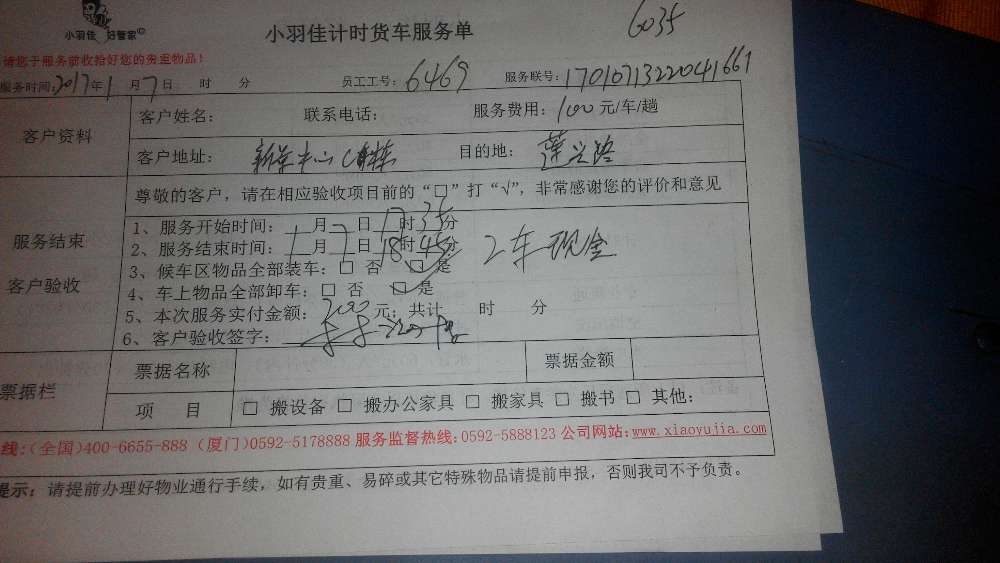 小羽佳 好管家
小羽佳计时货车服务单
6035
请您于服务前收拾好您的贵重物品!
服务时间: 2017年1月7日 时 分 员工工号: 6469 服务联号: 1701071322041661
客户资料
客户姓名: 联系电话: 服务费用: 100元/车/趟
客户地址: 中心 目的地: 莲兴路
服务结束
客户验收
尊敬的客户,请在相应验收项目前的“□”打“√”,非常感谢您的评价和意见
1、服务开始时间: 1月7日17时35分
2、服务结束时间: 1月7日18时45分
2车现金
3、候车区物品全部装车: □ 否 □ 是
4、车上物品全部卸车: □ 否 □ 是
5、本次服务实付金额: 200元; 共计 时 分
6、客户验收签字:
票据栏
票据名称 票据金额
项 目 □ 搬设备 □ 搬办公家具 □ 搬家具 □ 搬书 □ 其他:
线:(全国)400-6655-888 (厦门)0592-5178888 服务监督热线:0592-5888123 公司网站:www.xiaoyujia.com
提示: 请提前办理好物业通行手续,如有贵重、易碎或其它特殊物品请提前申报,否则我司不予负责。